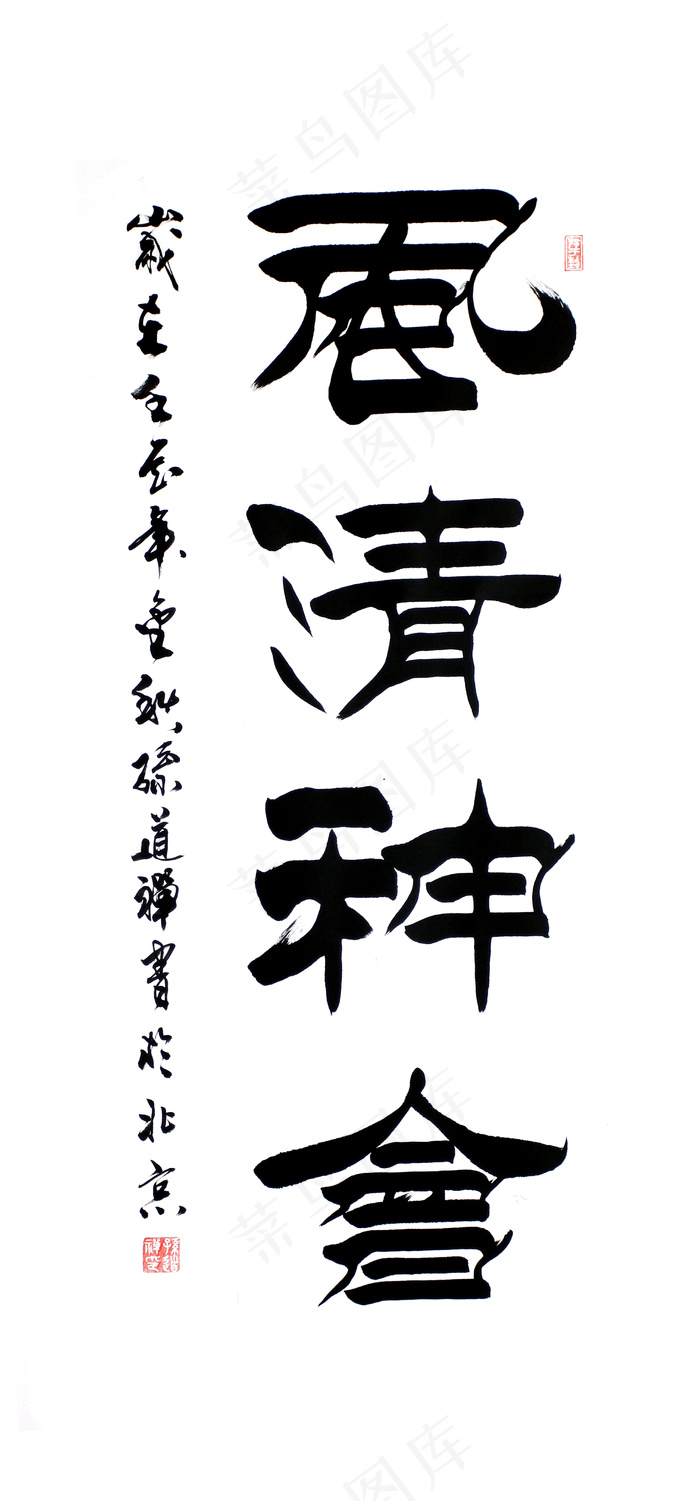 風清神會
歲在壬辰年金秋孫道禪書於北京
菜鸟图库
菜鸟图库
菜鸟图库
菜鸟图库
菜鸟图库